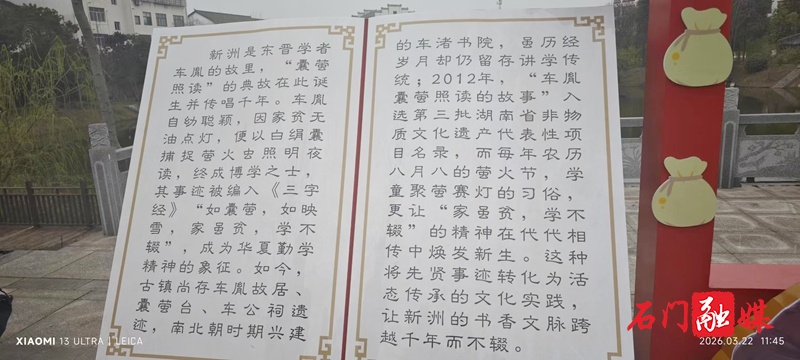 新洲是东晋学者
车胤的故里，“囊萤
照读”的典故在此诞
生并传唱千年。车胤
自幼聪颖，因家贫无
油点灯，便以白绢囊
捕捉萤火虫照明夜
读，终成博学之士，
其事迹被编入《三字
经》“如囊萤，如映
雪，家虽贫，学不
辍”，成为华夏勤学
精神的象征。如今，
古镇尚存车胤故居、
囊萤台、车公祠遗
迹，南北朝时期兴建
的车渚书院，虽历经
岁月却仍留存讲学传
统；2012年，“车胤
囊萤照读的故事”入
选第三批湖南省非物
质文化遗产代表性项
目名录，而每年农历
八月八的萤火节，学
童聚萤赛灯的习俗，
更让“家虽贫，学不
辍”的精神在代代相
传中焕发新生。这种
将先贤事迹转化为活
态传承的文化实践，
让新洲的书香文脉跨
越千年而不辍。
石门融媒
XIAOMI 13 ULTRA | LEICA
2026.03.22 11:45